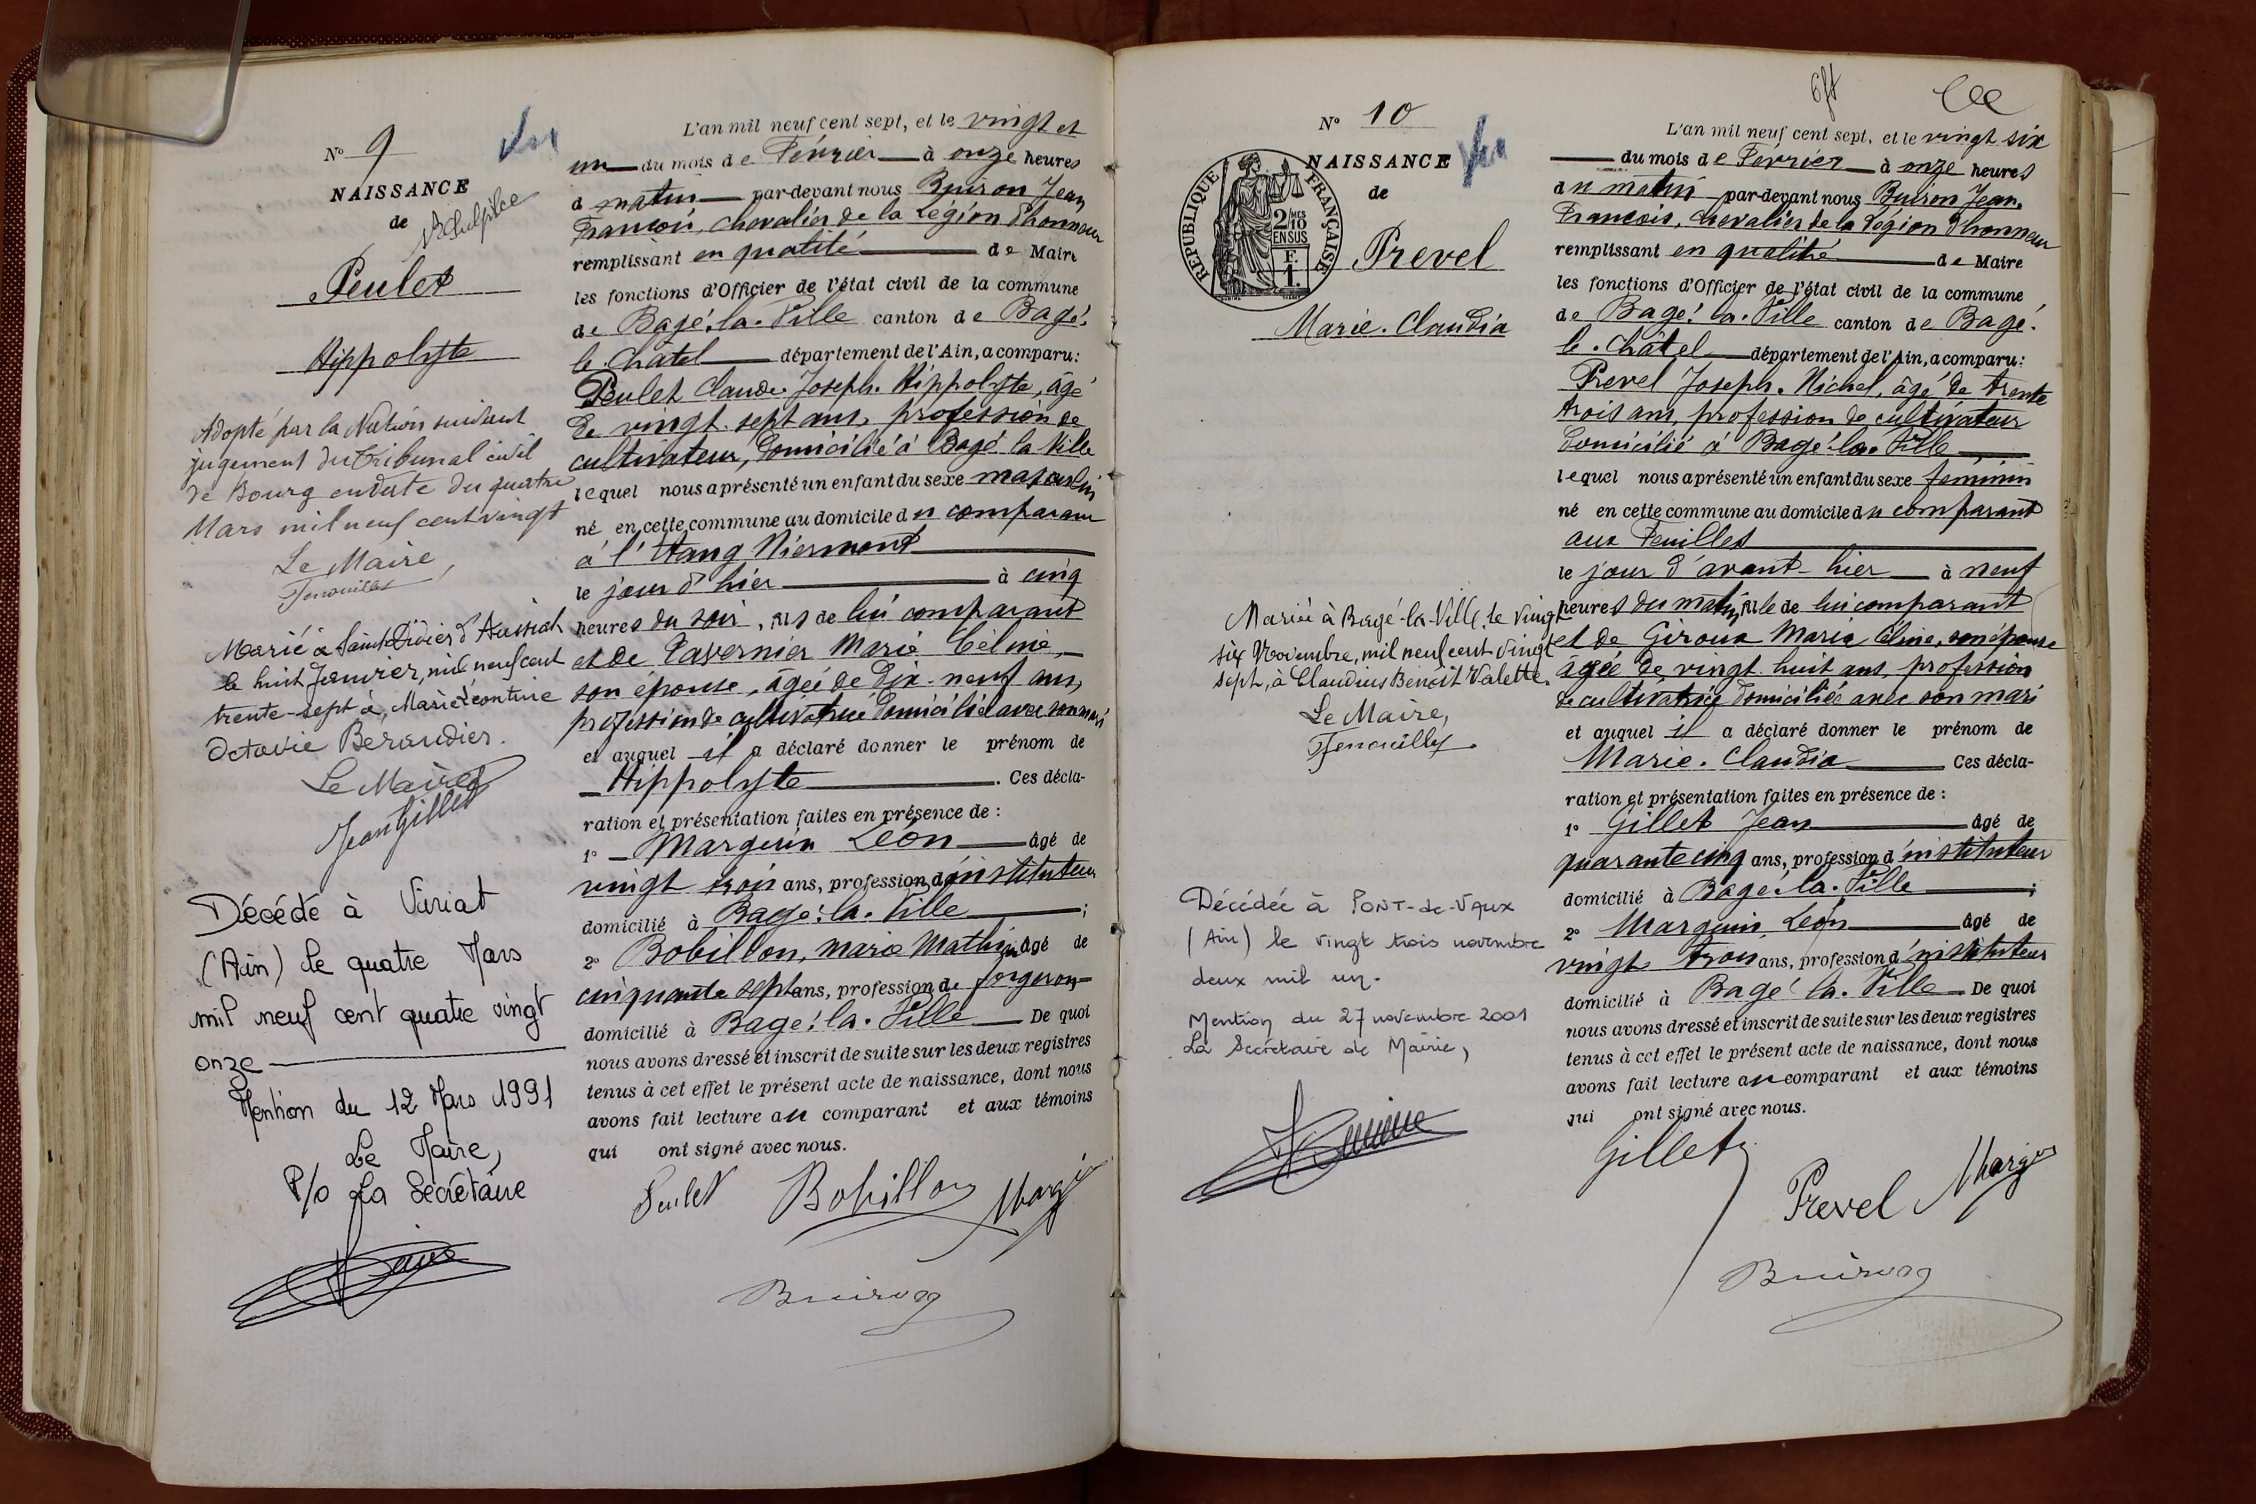 N° 9
NAISSANCE
de
St Sulpice
Peulet
Hippolyte
Adopté par la Nation suivant
jugement du Tribunal civil
de Bourg en date du quatre
Mars mil neuf cent vingt
Le Maire,
Marié à Saint Didier d'Aussiat
le huit Janvier, mil neuf cent
trente-sept à, Marie Léontine
Octavie Beraudier.
Le Maire
Jean Gillet
Décédé à Viriat
(Ain) le quatre Mars
mil neuf cent quatre vingt
onze
Mention du 12 Mars 1991
Le Maire,
P/o La Secrétaire
L'an mil neuf cent sept, et le vingt et
un du mois de Février à onze heures
d matin par-devant nous Buiron Jean
François, chevalier de la Légion d'honneur
remplissant en qualité de Maire
les fonctions d'Officier de l'état civil de la commune
de Bagé-la-Ville canton de Bagé-
le-Châtel département de l'Ain, a comparu:
Peulet Claude-Joseph-Hippolyte, âgé
de vingt-sept ans, profession de
cultivateur, domicilié à Bagé la Ville
lequel nous a présenté un enfant du sexe masculin
né en cette commune au domicile du comparant
à l'Etang Niermont
le jour d'hier à cinq
heures du soir, fils de lui comparant
et de Tavernier Marie Céline,
son épouse, âgée de dix-neuf ans,
profession de cultivatrice domiciliée avec son mari
et auquel il a déclaré donner le prénom de
Hippolyte. Ces décla-
ration et présentation faites en présence de :
1° Marguin Léon âgé de
vingt trois ans, profession d'instituteur
domicilié à Bagé-la-Ville ;
2° Bobillon, Marie Mathieu âgé de
cinquante sept ans, profession de forgeron
domicilié à Bagé-la-Ville De quoi
nous avons dressé et inscrit de suite sur les deux registres
tenus à cet effet le présent acte de naissance, dont nous
avons fait lecture au comparant et aux témoins
qui ont signé avec nous.
Peulet Bobillon Margu
Buiron
N° 10
NAISSANCE
de
RÉPUBLIQUE FRANÇAISE
2/10MES
EN SUS
F.
1.
Prevel
Marie-Claudia
Mariée à Bagé-la-Ville, le vingt
six Novembre, mil neuf cent vingt
sept, à Claudius Benoît Valette.
Le Maire,
Décédée à PONT-de-VAUX
(Ain) le vingt trois novembre
deux mil un.
Mention du 27 novembre 2001
La Secrétaire de Mairie,
L'an mil neuf cent sept, et le vingt six
du mois de Février à onze heures
du matin par-devant nous Buiron Jean-
François, chevalier de la Légion d'honneur
remplissant en qualité de Maire
les fonctions d'Officier de l'état civil de la commune
de Bagé-la-Ville canton de Bagé-
le-Châtel département de l'Ain, a comparu:
Prevel Joseph-Michel, âgé de trente
trois ans, profession de cultivateur
domicilié à Bagé-la-Ville
lequel nous a présenté un enfant du sexe féminin
né en cette commune au domicile du comparant
aux Feuilles
le jour d'avant-hier à neuf
heures du matin, fille de lui comparant
et de Giroux Marie Céline, son épouse
âgée de vingt-huit ans, profession
de cultivatrice domiciliée avec son mari
et auquel il a déclaré donner le prénom de
Marie-Claudia Ces décla-
ration et présentation faites en présence de :
1° Gillet Jean âgé de
quarante cinq ans, profession d'instituteur
domicilié à Bagé-la-Ville ;
2° Marguin Léon âgé de
vingt trois ans, profession d'instituteur
domicilié à Bagé-la-Ville De quoi
nous avons dressé et inscrit de suite sur les deux registres
tenus à cet effet le présent acte de naissance, dont nous
avons fait lecture au comparant et aux témoins
qui ont signé avec nous.
Gillet
Prevel Margu
Buiron